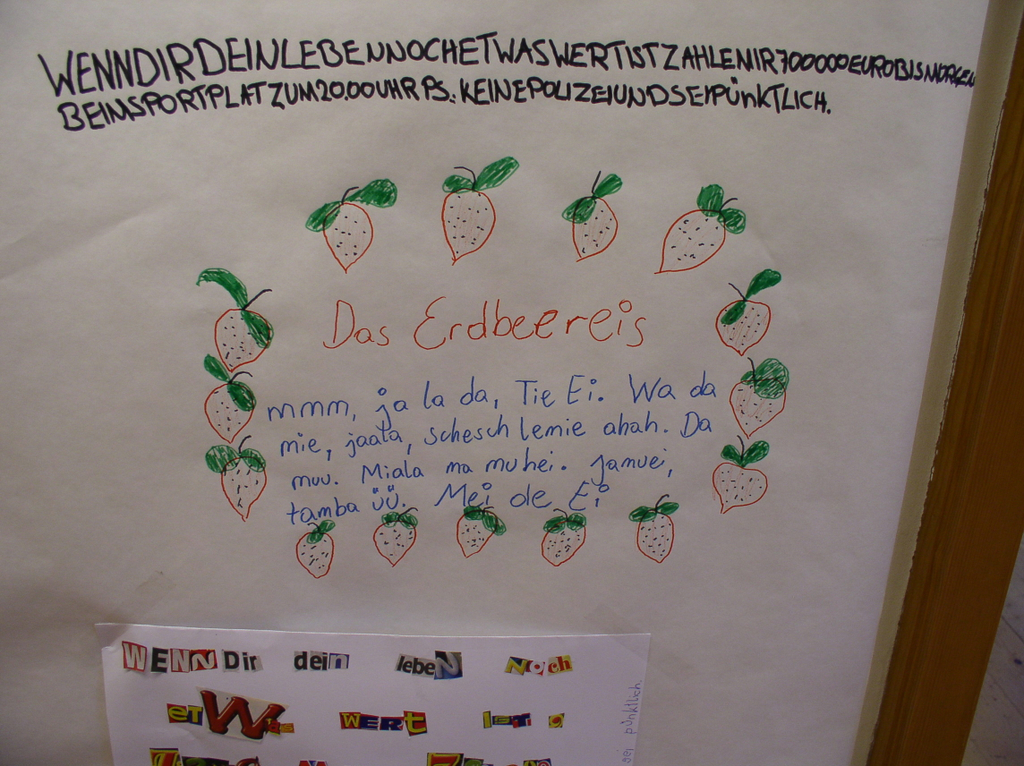 WENNDIRDEINLEBENNOCHETWASWERTISTZAHLEMIR700000EUROBISMORGEN
BEIMSPORTPLATZUM20.00UHRPS.:KEINEPOLIZEIUNDSEIPÜNKTLICH.
Das Erdbeereis
mmm, ja la da, Tie Ei. Wa da
mie, jaala, schesch lemie ahah. Da
muu. Miala ma muhei. Jamuei,
tamba üü. Mei de Ei
WENN Dir dein lebeN Noch
etWas WERt ist
sei pünktlich.